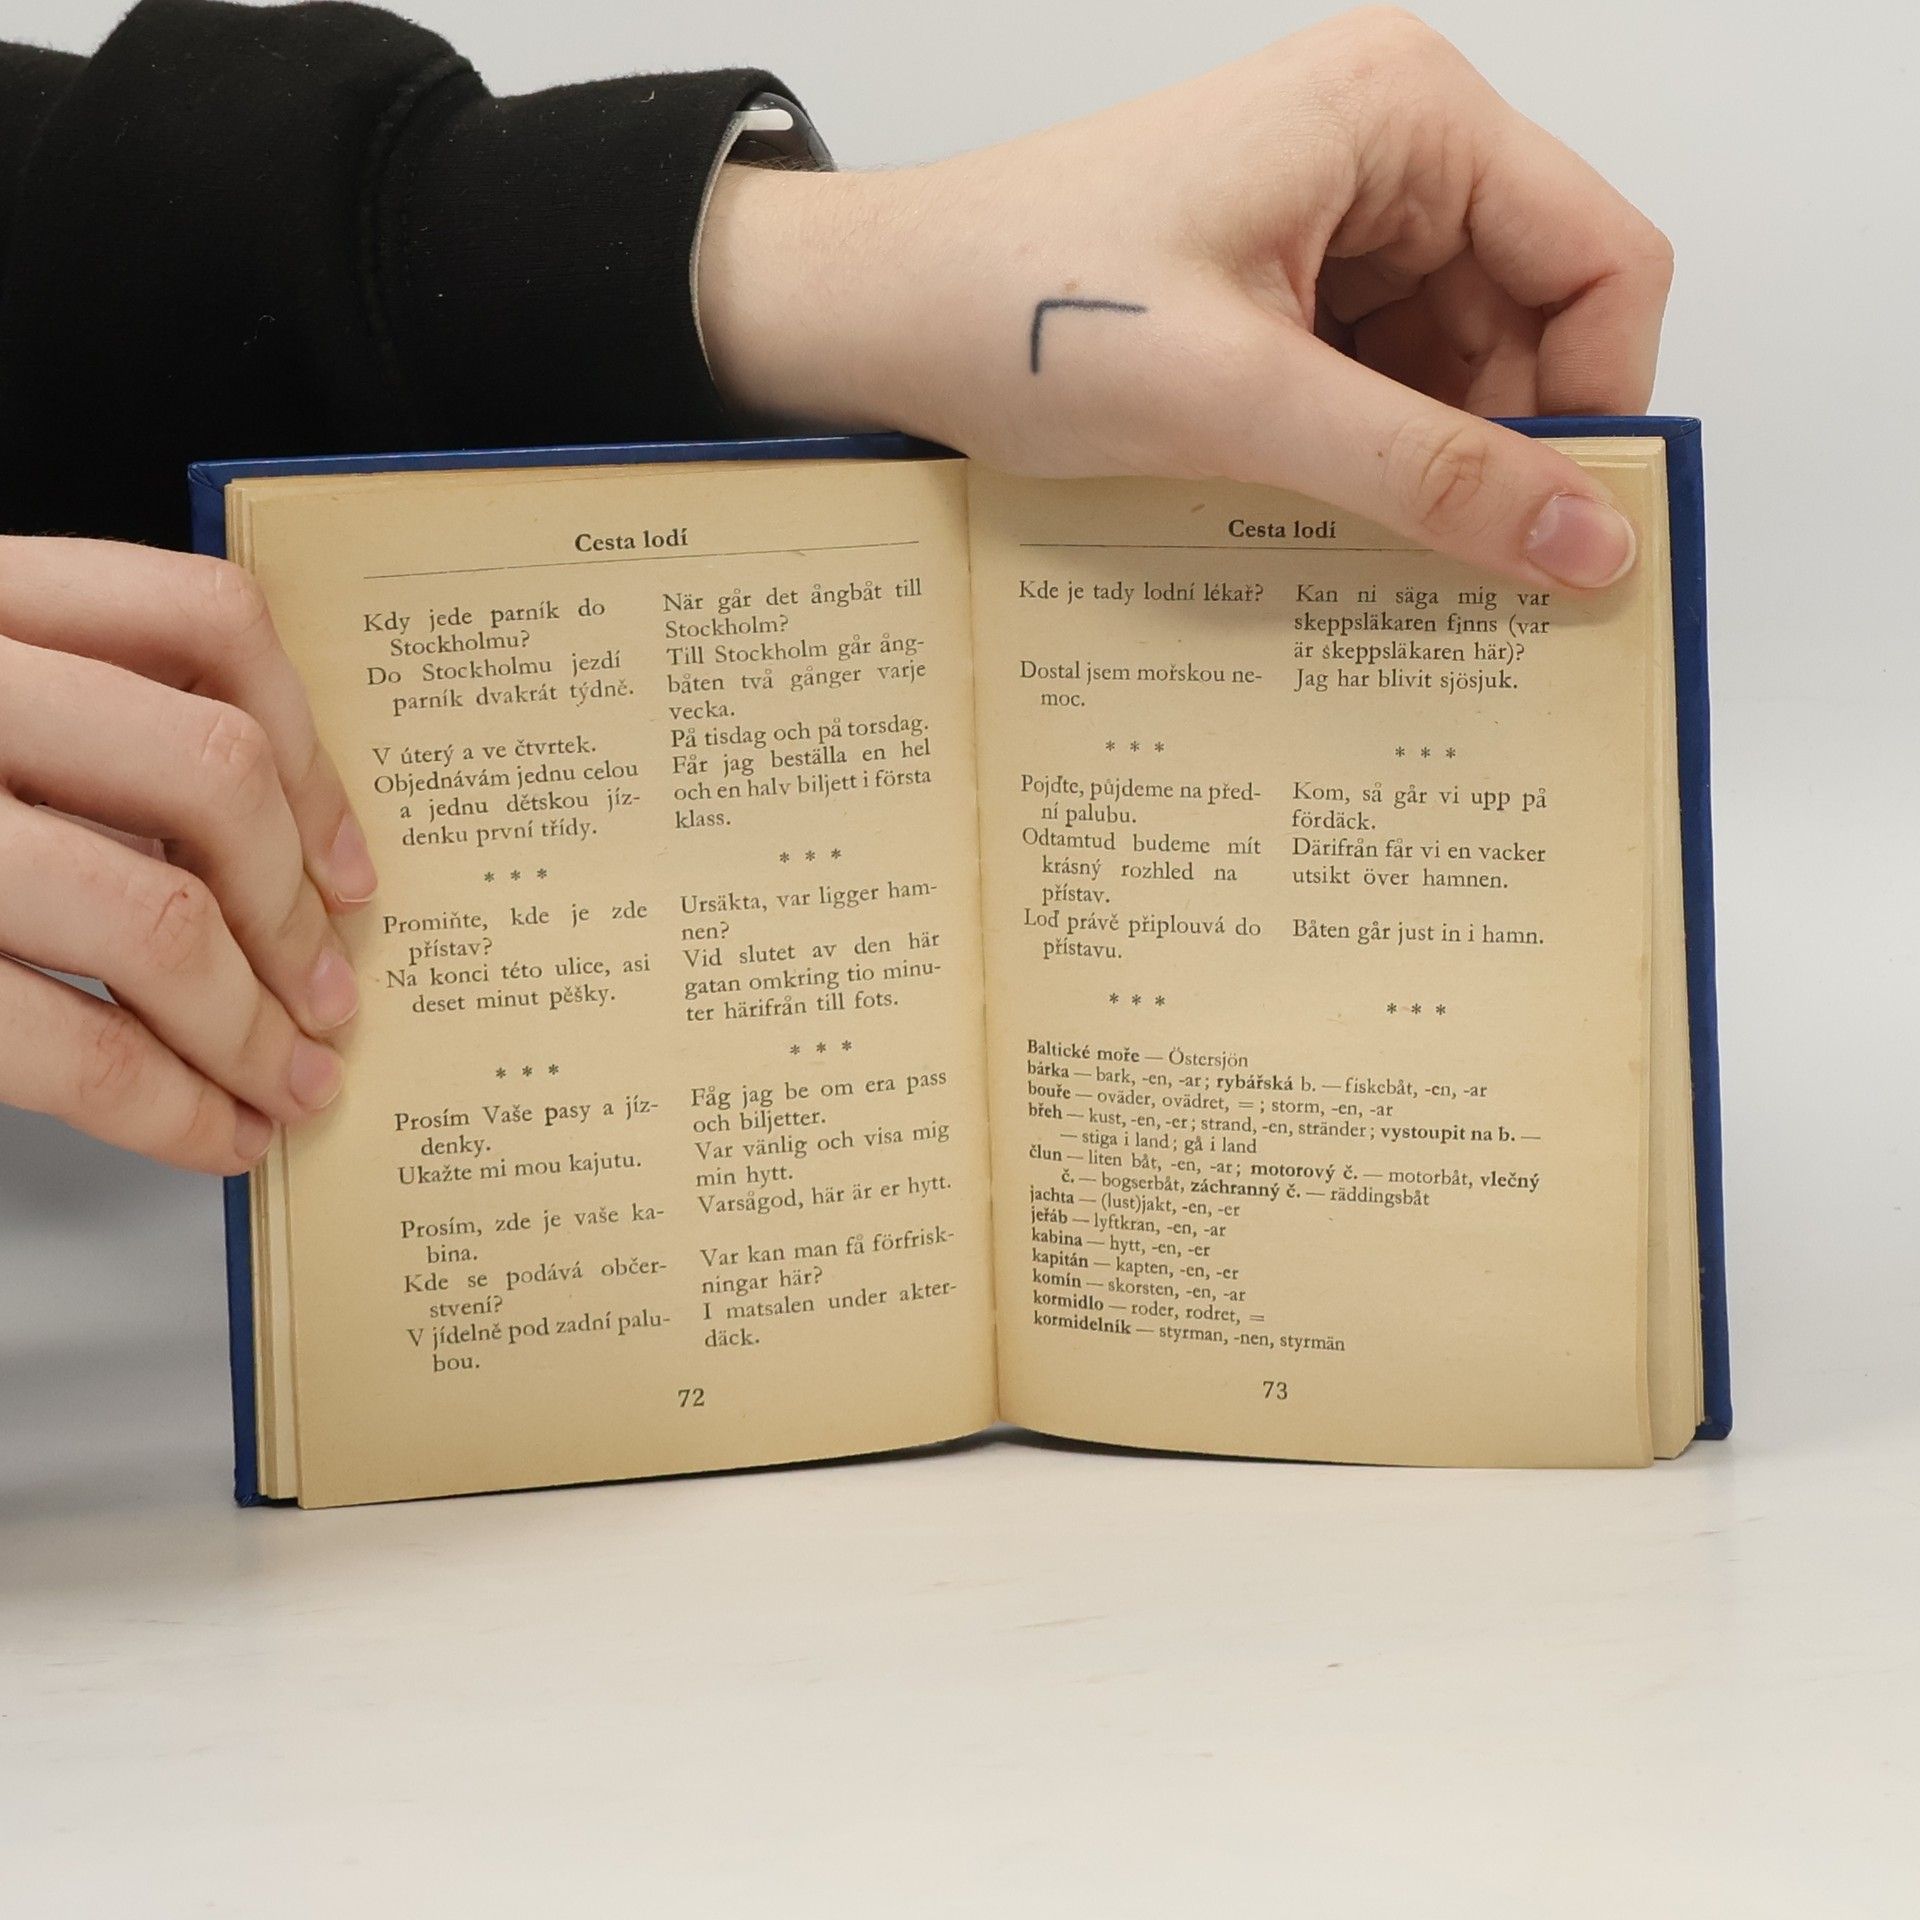 Cesta lodí
Kdy jede parník do
Stockholmu?
Do Stockholmu jezdí
parník dvakrát týdně.
V úterý a ve čtvrtek.
Objednávám jednu celou
a jednu dětskou jíz-
denku první třídy.
* * *
Promiňte, kde je zde
přístav?
Na konci této ulice, asi
deset minut pěšky.
* * *
Prosím Vaše pasy a jíz-
denky.
Ukažte mi mou kajutu.
Prosím, zde je vaše ka-
bina.
Kde se podává občer-
stvení?
V jídelně pod zadní palu-
bou.
När går det ångbåt till
Stockholm?
Till Stockholm går ång-
båten två gånger varje
vecka.
På tisdag och på torsdag.
Får jag beställa en hel
och en halv biljett i första
klass.
* * *
Ursäkta, var ligger ham-
nen?
Vid slutet av den här
gatan omkring tio minu-
ter härifrån till fots.
* * *
Fåg jag be om era pass
och biljetter.
Var vänlig och visa mig
min hytt.
Varsågod, här är er hytt.
Var kan man få förfrisk-
ningar här?
I matsalen under akter-
däck.
72
Cesta lodí
Kde je tady lodní lékař?
Dostal jsem mořskou ne-
moc.
* * *
Pojďte, půjdeme na před-
ní palubu.
Odtamtud budeme mít
krásný rozhled na
přístav.
Loď právě připlouvá do
přístavu.
* * *
Kan ni säga mig var
skeppsläkaren fjnns (var
är skeppsläkaren här)?
Jag har blivit sjösjuk.
* * *
Kom, så går vi upp på
fördäck.
Därifrån får vi en vacker
utsikt över hamnen.
Båten går just in i hamn.
* * *
Baltické moře — Östersjön
bárka — bark, -en, -ar; rybářská b. — fiskebåt, -en, -ar
bouře — oväder, ovädret, = ; storm, -en, -ar
břeh — kust, -en, -er; strand, -en, stränder; vystoupit na b. —
— stiga i land; gå i land
člun — liten båt, -en, -ar; motorový č. — motorbåt, vlečný
č. — bogserbåt, záchranný č. — räddingsbåt
jachta — (lust)jakt, -en, -er
jeřáb — lyftkran, -en, -ar
kabina — hytt, -en, -er
kapitán — kapten, -en, -er
komín — skorsten, -en, -ar
kormidlo — roder, rodret, =
kormidelník — styrman, -nen, styrmän
73